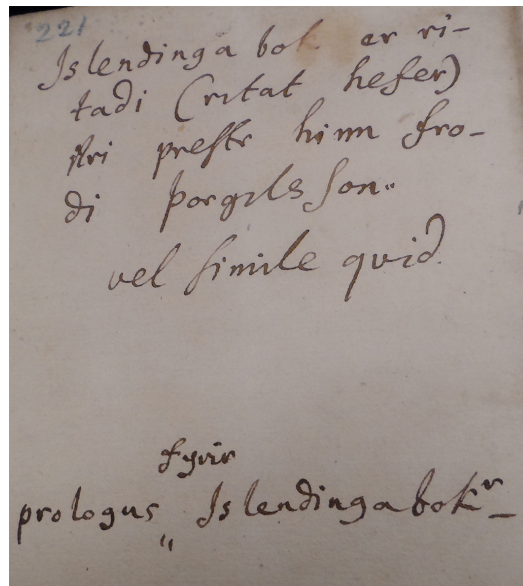 221
Islendinga bok er ri-
tadi (ritat hefer)
Ari prestr hinn fro-
di þorgilsson"
vel simile quid.
fyrir
prologus „ Islendingabokr-